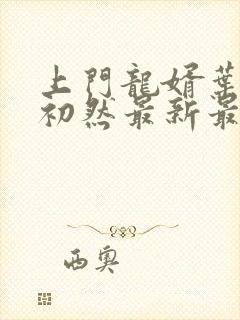 上門龍婿葉
初然最新最
西奥